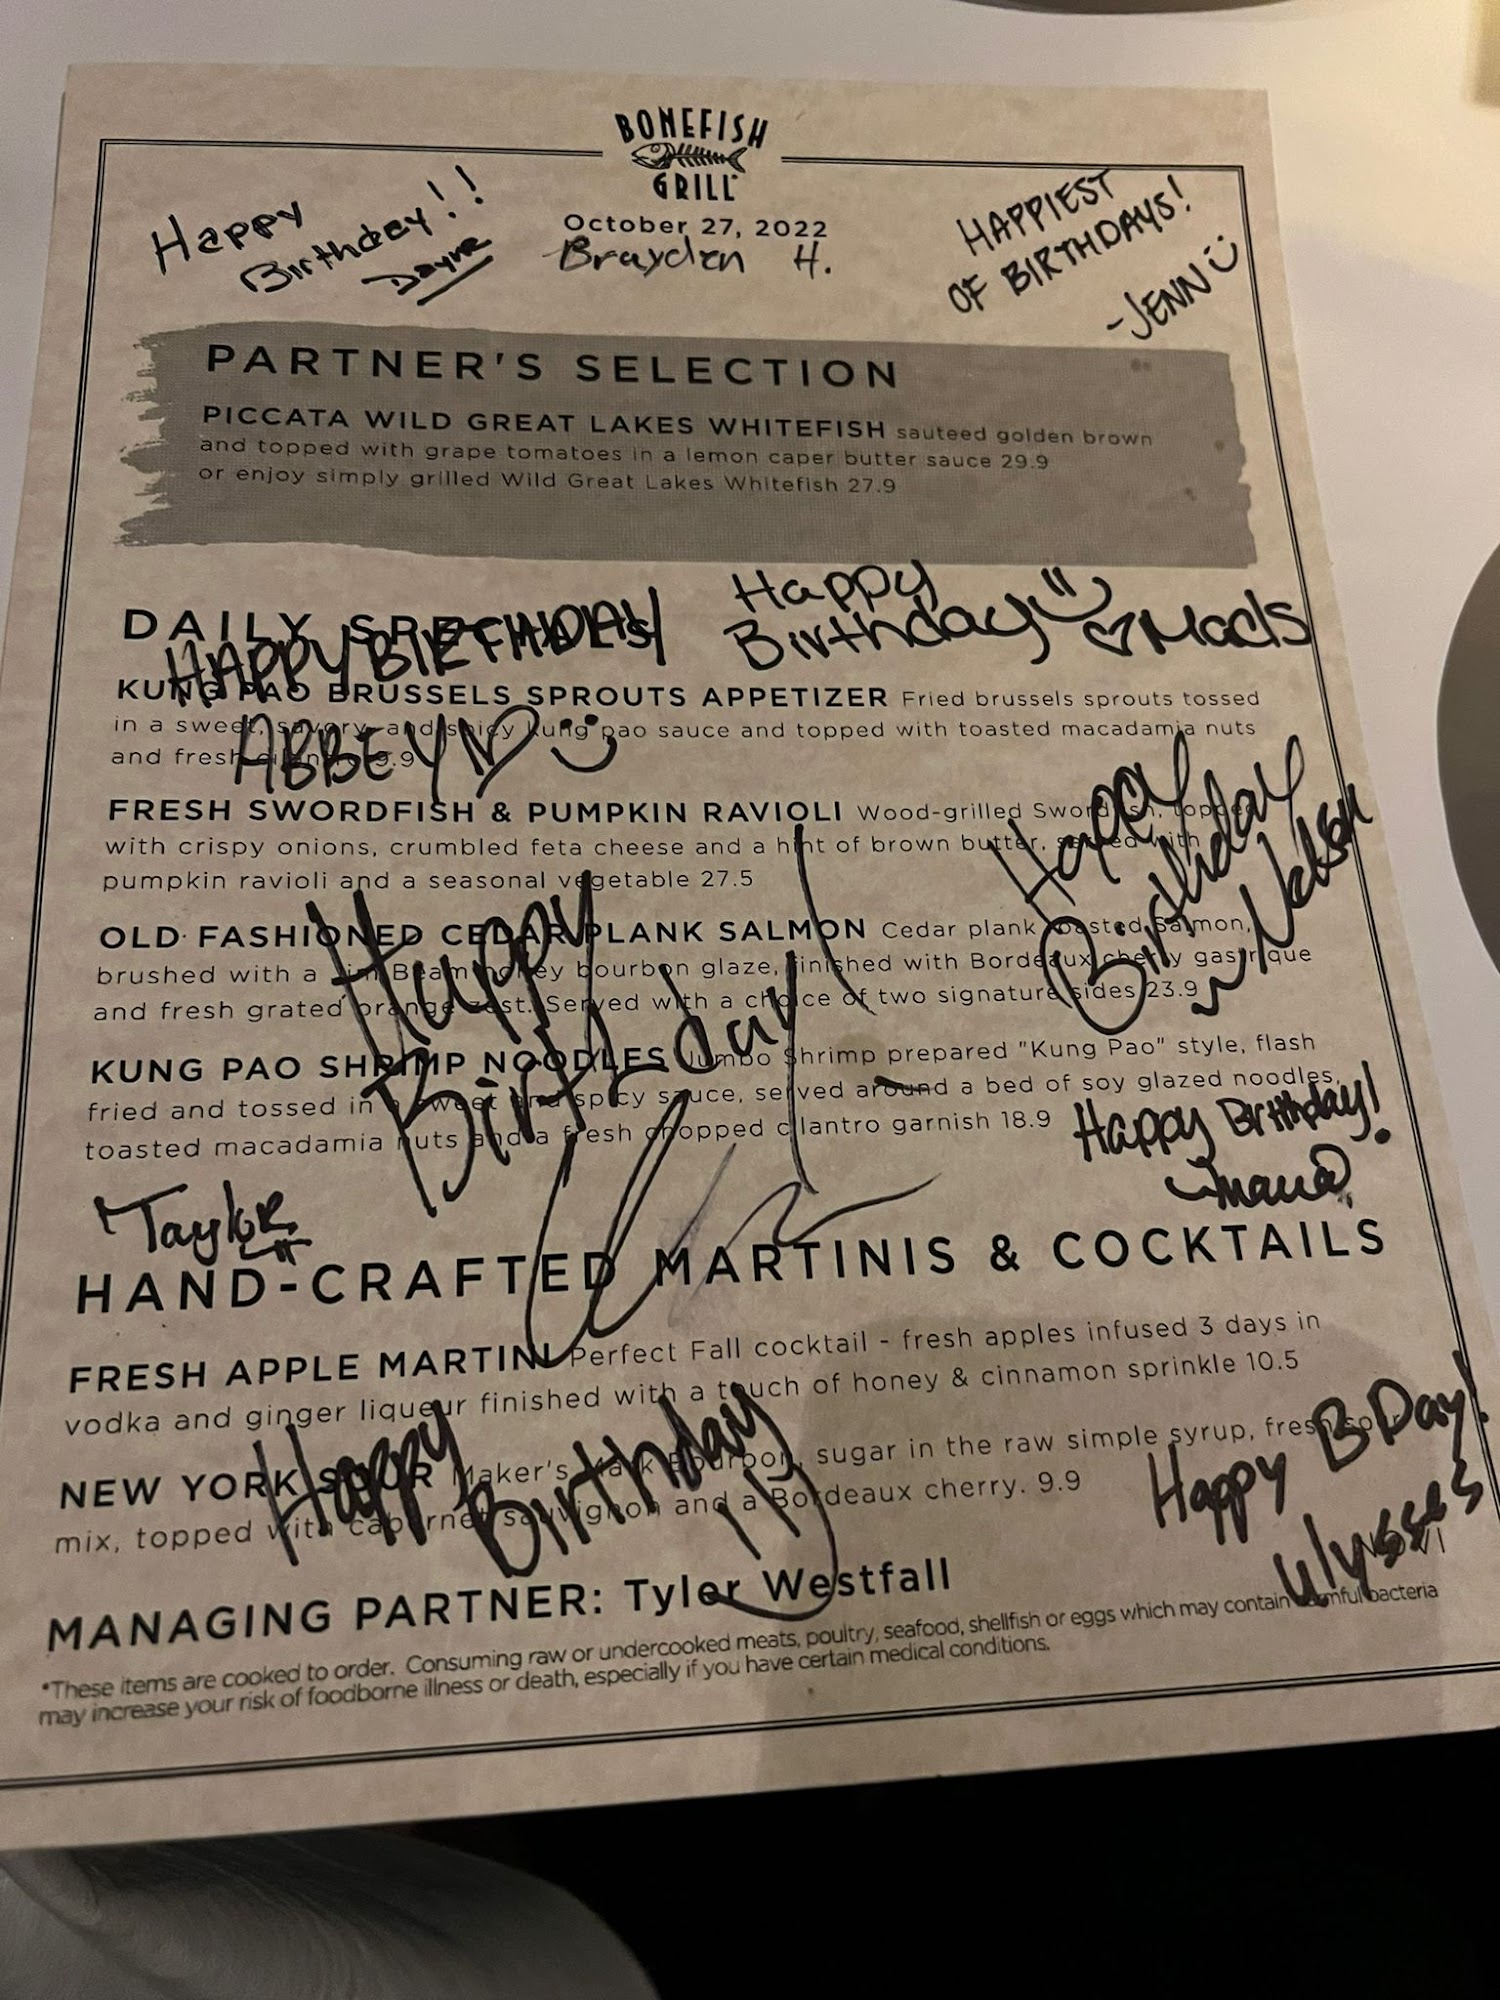 BONEFISH
GRILL
October 27, 2022
Happy
Birthday!!
Dayne
Brayden H.
HAPPIEST
OF BIRTHDAYS!
-JENN
PARTNER'S SELECTION
PICCATA WILD GREAT LAKES WHITEFISH sauteed golden brown
and topped with grape tomatoes in a lemon caper butter sauce 29.9
or enjoy simply grilled Wild Great Lakes Whitefish 27.9
DAILY SPECIALS
HAPPY BIRTHDAY
ABBEY
Happy
Birthday
Mads
KUNG PAO BRUSSELS SPROUTS APPETIZER Fried brussels sprouts tossed
in a sweet, savory, and spicy kung pao sauce and topped with toasted macadamia nuts
and fresh cilantro 9.9
FRESH SWORDFISH & PUMPKIN RAVIOLI Wood-grilled Swordfish, topped
with crispy onions, crumbled feta cheese and a hint of brown butter, served with
pumpkin ravioli and a seasonal vegetable 27.5
Happy
Birthday
OLD FASHIONED CEDAR PLANK SALMON Cedar plank roasted Salmon,
brushed with a Jim Beam honey bourbon glaze, finished with Bordeaux cherry gastrique
and fresh grated orange zest. Served with a choice of two signature sides 23.9
Happy
Birthday!
KUNG PAO SHRIMP NOODLES Jumbo Shrimp prepared "Kung Pao" style, flash
fried and tossed in a sweet and spicy sauce, served around a bed of soy glazed noodles,
toasted macadamia nuts and a fresh chopped cilantro garnish 18.9
Happy Birthday!
Taylor
HAND-CRAFTED MARTINIS & COCKTAILS
FRESH APPLE MARTINI Perfect Fall cocktail - fresh apples infused 3 days in
vodka and ginger liqueur finished with a touch of honey & cinnamon sprinkle 10.5
NEW YORK SOUR Maker's Mark Bourbon, sugar in the raw simple syrup, fresh sour
mix, topped with cabernet sauvignon and a Bordeaux cherry. 9.9
Happy
Birthday
Happy BDay!
Ulysses
MANAGING PARTNER: Tyler Westfall
*These items are cooked to order. Consuming raw or undercooked meats, poultry, seafood, shellfish or eggs which may contain harmful bacteria
may increase your risk of foodborne illness or death, especially if you have certain medical conditions.